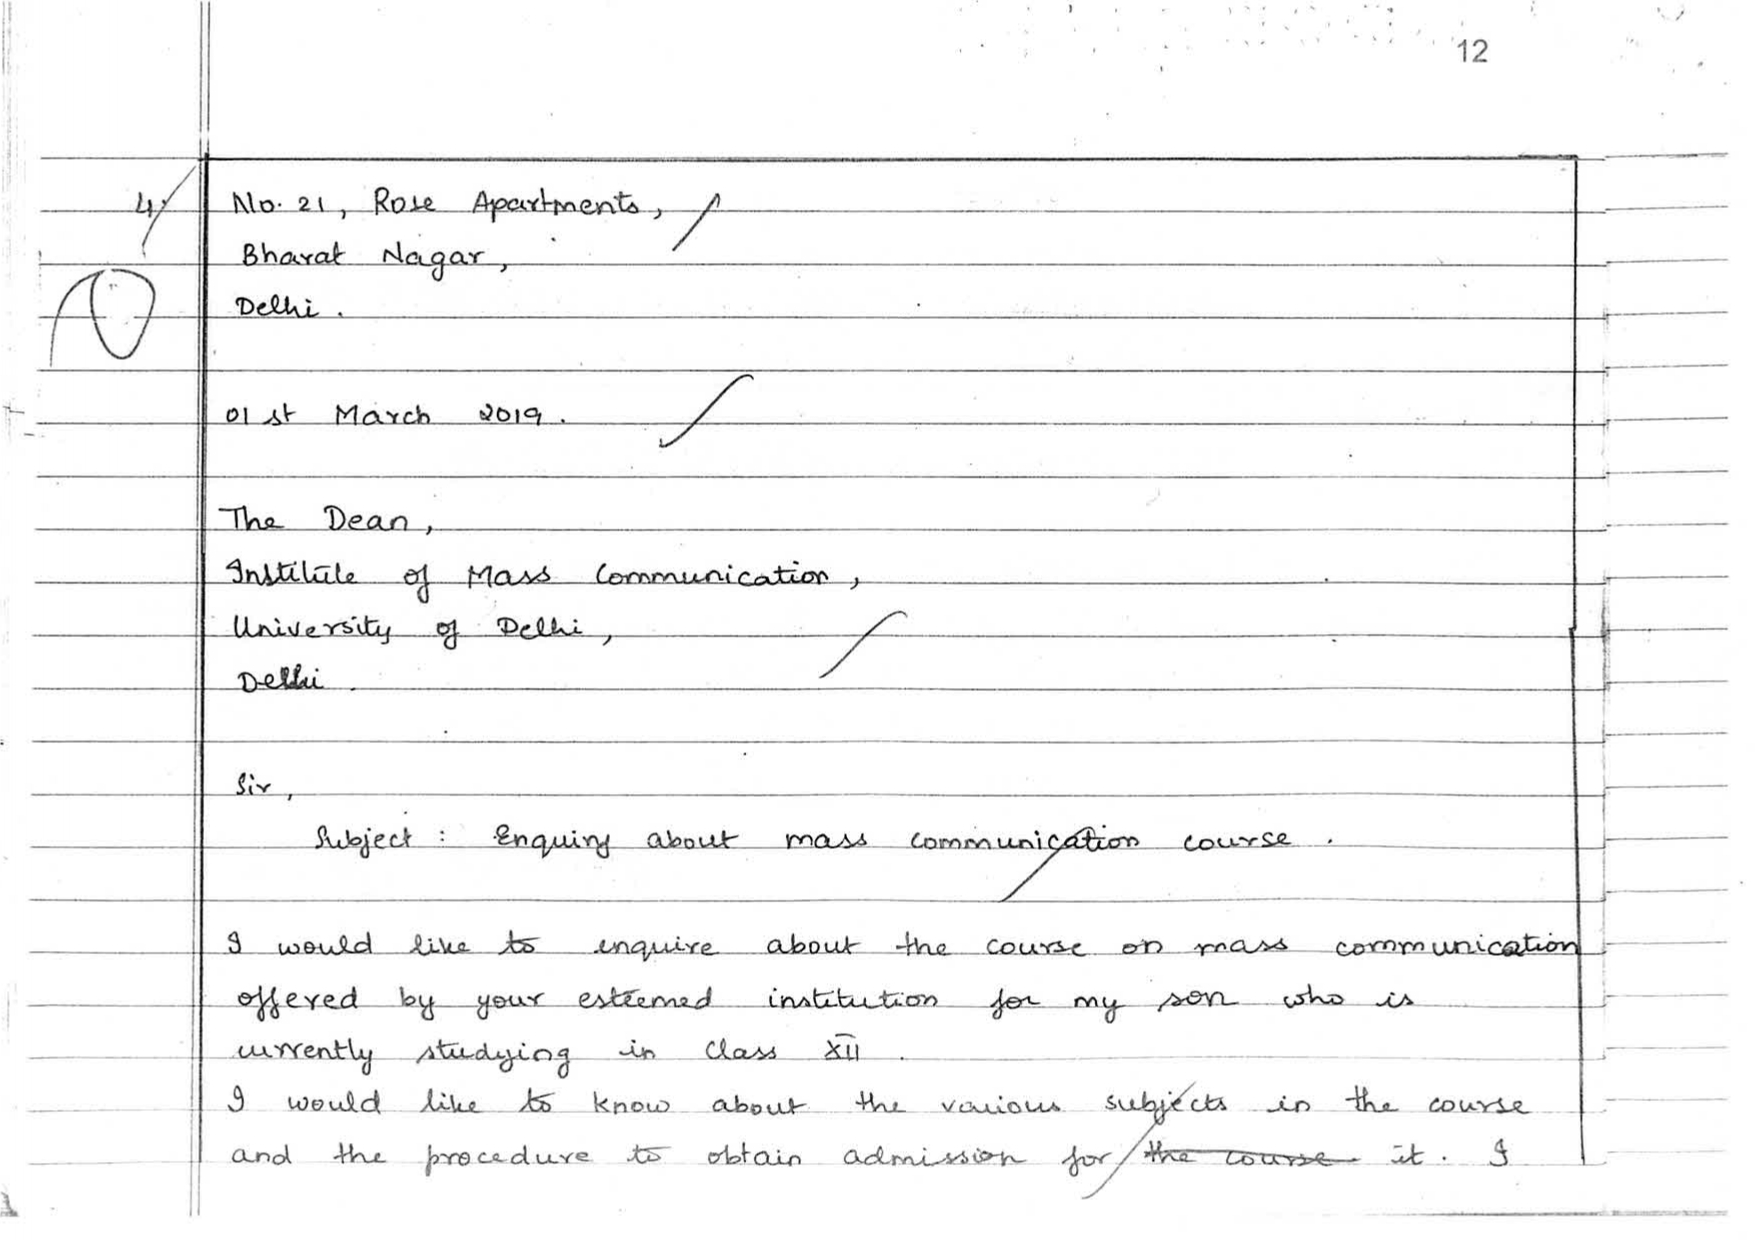 12
4.
No. 21, Rose Apartments,
Bharat Nagar,
Delhi.
01st March 2019.
The Dean,
Institute of Mass Communication,
University of Delhi,
Delhi.
Sir,
Subject : Enquiry about mass communication course.
I would like to enquire about the course on mass communication
offered by your esteemed institution for my son who is
currently studying in Class XII.
I would like to know about the various subjects in the course
and the procedure to obtain admission for the course it. I